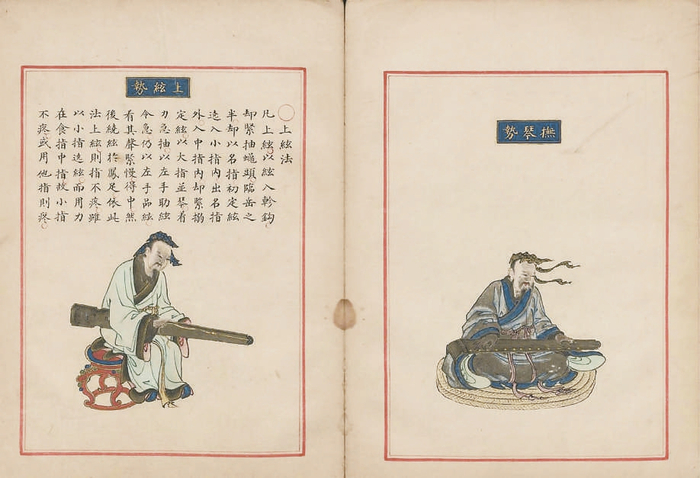 撫琴勢
上絃勢
○上絃法
凡上絃以絃入軫鈎
却緊抽蠅頭臨岳之
半却以名指初定絃
迭入小指內出名指
外入中指內却緊搦
定絃以大指並琴看
力急抽以左手助絃
令急仍以左手品絃
看其聲緊慢得中然
後繞絃於鳳足依此
法上絃則指不疼雖
以小指迭絃而用力
在食指中指故小指
不疼或用他指則疼○